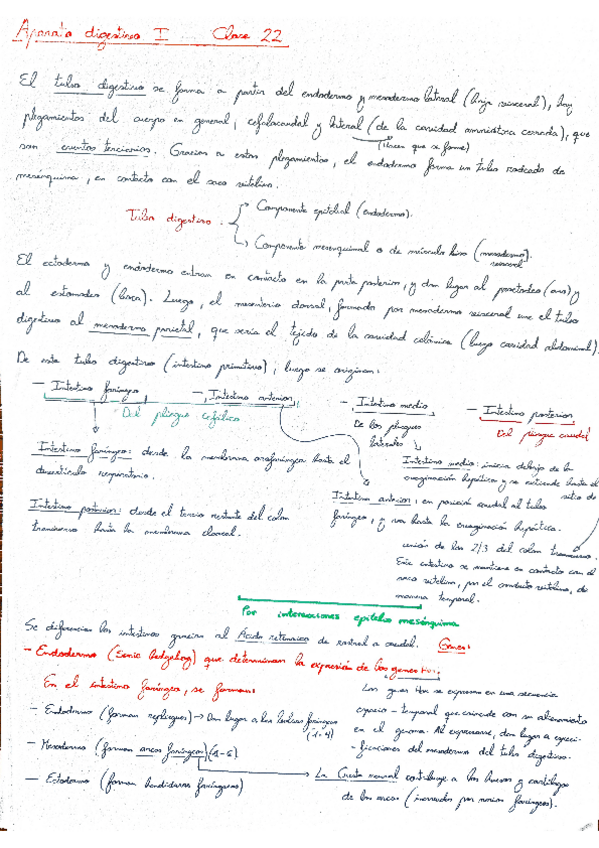 Aparato digestivo I Clase 22
El tubo digestivo se forma a partir del endodermo y mesodermo lateral (hoja visceral), hay
plegamientos del cuerpo en general, cefalocaudal y lateral (de la cavidad amniótica cerrada), que
(hacen que se forme)
son eventos terciarios. Gracias a estos plegamientos, el endodermo forma un tubo rodeado de
mesénquima, en contacto con el saco vitelino.
Tubo digestivo
Componente epitelial (endodermo).
Componente mesenquimal o de músculo liso (mesodermo).
visceral
El ectodermo y endodermo entran en contacto en la parte posterior, y dan lugar al proctodeo (ano) y
al estomodeo (boca). Luego, el mesenterio dorsal, formado por mesodermo visceral une el tubo
digestivo al mesodermo parietal, que sería el tejido de la cavidad celómica (luego cavidad abdominal).
De este tubo digestivo (intestino primitivo), luego se originan:
- Intestino faríngeo
- Intestino anterior
- Intestino medio
- Intestino posterior
Del pliegue cefálico
De los pliegues
laterales
Del pliegue caudal
Intestino faríngeo: desde la membrana orofaríngea hasta el
divertículo respiratorio.
Intestino medio: inicia debajo de la
evaginación hepática y se extiende hasta el
sitio de
Intestino anterior: en posición caudal al tubo
faríngeo, y va hasta la evaginación hepática.
Intestino posterior: desde el tercio restante del colon
transverso hasta la membrana cloacal.
unión de los 2/3 del colon transverso.
Este intestino se mantiene en contacto con el
saco vitelino, por el conducto vitelino, de
manera temporal.
Por interacciones epitelio mesénquima
Se diferencian los intestinos gracias al Ácido retinoico de craneal a caudal. Genes:
- Endodermo (Sonic hedgehog) que determinan la expresión de los genes Hox.
En el intestino faríngeo, se forman:
Los genes Hox se expresan en una secuencia
espacio-temporal que coincide con su alineamiento
en el genoma. Al expresarse, dan lugar a especi-
-ficaciones del mesodermo del tubo digestivo.
- Endodermo (forman repliegues) → Dan lugar a las bolsas faríngeas
(1-4)
- Mesodermo (forman arcos faríngeos) (1-6)
- Ectodermo (forman hendiduras faríngeas)
La Cresta neural contribuye a los huesos y cartílagos
de los arcos (inervados por nervios faríngeos).